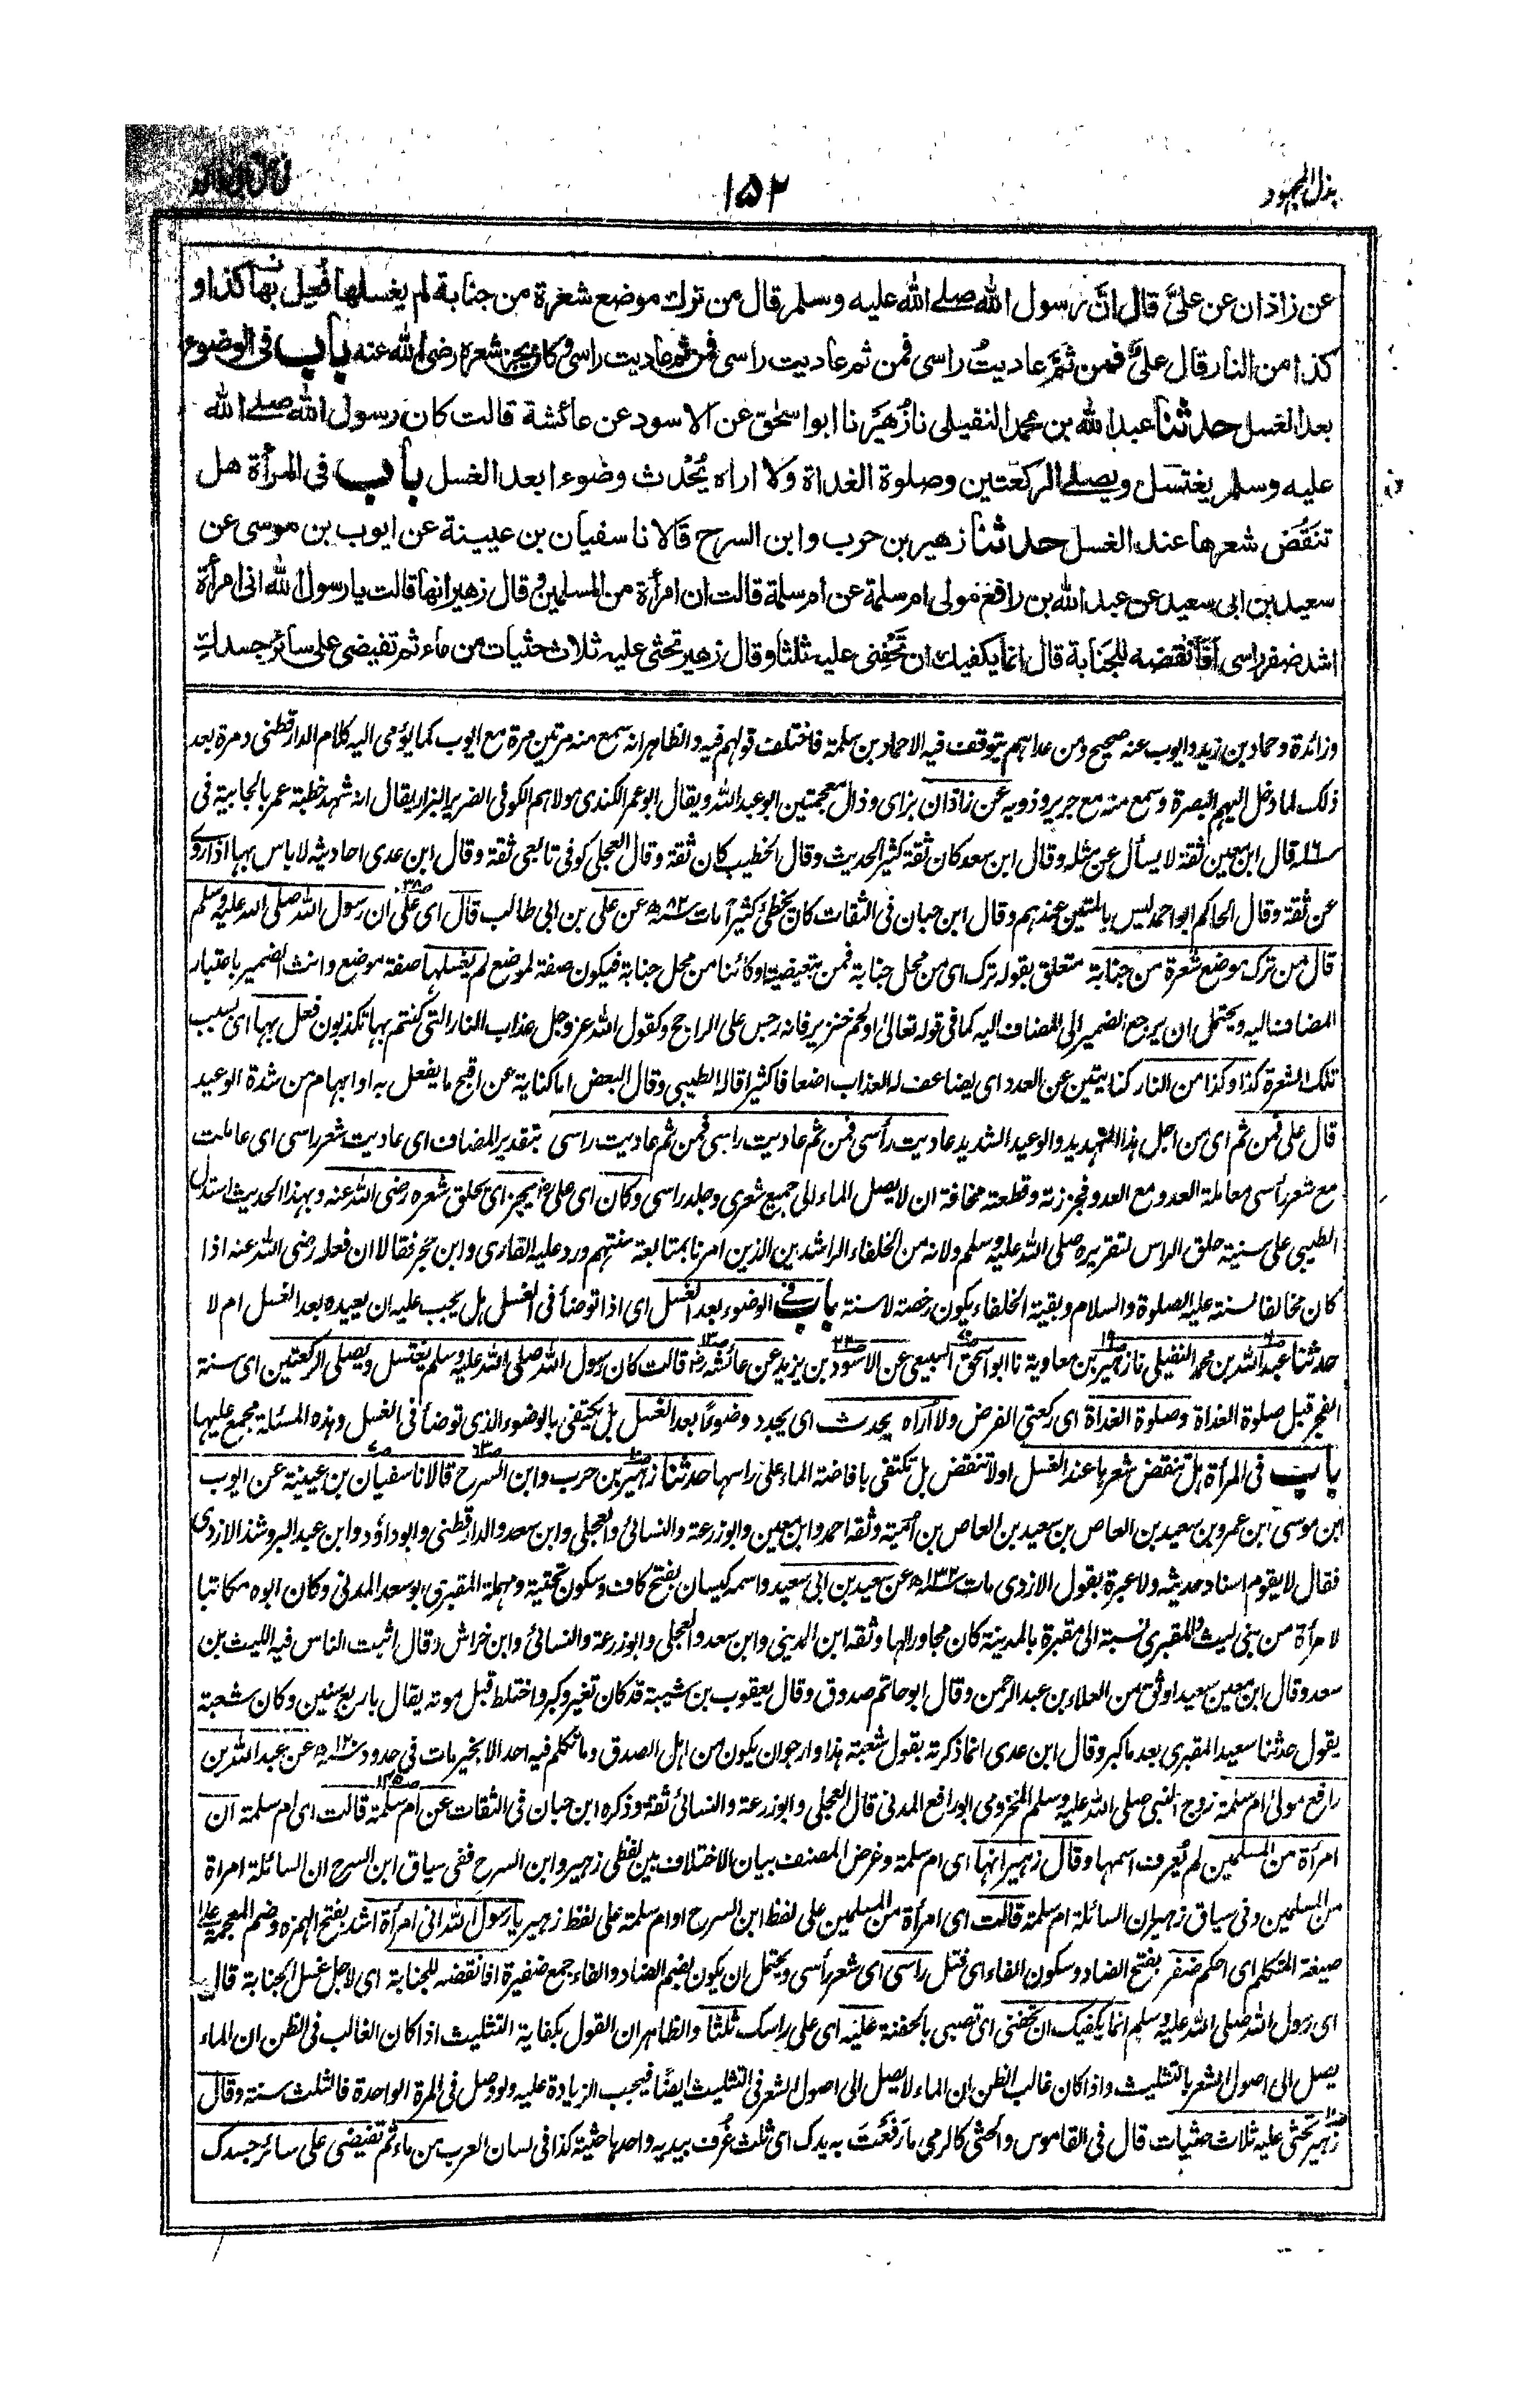 بذل المجهود
١٥٢
عن زاذان عن علىّ قال انّ رسول الله صلے الله عليه وسلم قال من ترك موضع شعرة من جنابة لم يغسلها فُعِل بها كذا و
كذا من النار قال علىّ فمن ثَمَّ عاديتُ راسى فمن ثم عاديت راسى فمن ثم عاديت راسى وكان يجز شعره رضى الله عنه باب فى الوضوء
بعد الغسل حدثنا عبد الله بن محمد النفيلى نا زُهَير نا ابو اسحٰق عن الاسود عن عائشة قالت كان رسول الله صلے الله
عليه وسلم يغتسل ويصلے الركعتين وصلوة الغداة ولا اراه يُحْدث وضوءا بعد الغسل باب فى المرأة هل
تنقض شعرها عند الغسل حدثنا زهير بن حرب وابن السرح قالا نا سفيان بن عيينة عن ايوب بن موسى عن
سعيد بن ابى سعيد عن عبد الله بن رافع مولى ام سلمة عن ام سلمة قالت ان امرأة من المسلمين وقال زهير انها قالت يا رسول الله انى امرأة
اشد ضفر راسى أفأنقضه للجنابة قال انما يكفيك ان تَحْفِنى عليه ثلثا وقال زهير تحثى عليه ثلاث حثيات من ماء ثم تفيضى على سائر جسدك
وزائدة وحماد بن زيد وايوب عنه صحيح ومن عداهم يتوقف فيه الا حماد بن سلمة فاختلف قولهم فيه والظاهر انه سمع منه مرتين مرة مع ايوب كما يؤمى اليه كلام الدارقطنى ومرة بعد
ذلك لما دخل اليهم البصرة وسمع منه مع جرير وذويه عن زاذان بزاى وذال معجمتين ابو عبد الله ويقال ابو عمر الكندى مولاهم الكوفى الضرير البزار يقال انه شهد خطبة عمر بالجابية فى
قال ابن معين ثقة لا يسأل عن مثله وقال ابن سعد كان ثقة كثير الحديث وقال الخطيب كان ثقة وقال العجلى كوفى تابعى ثقة وقال ابن عدى احاديثه لا باس بها اذا روى
عن ثقة وقال الحاكم ابو احمد ليس بالمتين عندهم وقال ابن حبان فى الثقات كان يخطئ كثيرا مات سنة ٨٢ھ عن على بن ابى طالب قال اى على ان رسول الله صلى الله عليه وسلم
قال من ترك موضع شعرة من جنابة متعلق بقوله ترك اى من محل جنابة فمن تبعيضية او كائنا من محل جنابة فيكون صفة لموضع لم يغسلها صفة موضع وانث الضمير باعتبار
المضاف اليه ويحتمل ان يرجع الضمير الى المضاف اليه كما فى قوله تعالى او لحم خنزير فانه رجس على الراجح وكقول الله عز وجل عذاب النار التى كنتم بها تكذبون فعل بها اى بسبب
تلك الشعرة كذا وكذا من النار كنايتين عن العدد اى يضاعف له العذاب اضعافا كثيرا قاله الطيبى وقال البعض اما كناية عن اقبح ما يفعل به او ابهام من شدة الوعيد
قال على فمن ثم اى من اجل هذا التهديد والوعيد الشديد عاديت رأسى فمن ثم عاديت راسى فمن ثم عاديت راسى بتقدير المضاف اى عاديت شعر راسى اى عاملت
مع شعر رأسى معاملة العدو مع العدو فجززته وقطعته مخافة ان لا يصل الماء الى جميع شعرى وجلد راسى وكان اى على يجز اى يحلق شعره رضى الله عنه وبهذا الحديث استدل
الطيبى على سنية حلق الراس لتقريره صلى الله عليه وسلم ولانه من الخلفاء الراشدين الذين امرنا بمتابعة سنتهم ورد عليه القارى وابن حجر فقالا ان فعله رضى الله عنه اذا
كان مخالفا لسنته عليه الصلوة والسلام وبقية الخلفاء يكون رخصة لا سنة باب فى الوضوء بعد الغسل اى اذا توضأ فى الغسل هل يجب عليه ان يعيده بعد الغسل ام لا
حدثنا عبد الله بن محمد النفيلى نا زهير بن معاوية نا ابو اسحق السبيعى عن الاسود بن يزيد عن عائشة قالت كان رسول الله صلى الله عليه وسلم يغتسل ويصلى الركعتين اى سنة
الفجر قبل صلوة الغداة وصلوة الغداة اى ركعتى الفرض ولا اراه يحدث اى يجدد وضوءًا بعد الغسل بل يكتفى بالوضوء الذى توضأ فى الغسل وهذه المسئلة مجمع عليها
باب فى المرأة هل تنقض شعرها عند الغسل او لا تنقض بل تكتفى بافاضة الماء على راسها حدثنا زهير بن حرب وابن السرح قالا نا سفيان بن عيينة عن ايوب
ابن موسى ابن عمرو بن سعيد بن العاص بن سعيد بن العاص بن امية وثقه احمد وابن معين وابو زرعة والنسائى والعجلى وابن سعد والدارقطنى وابو داؤد وابن عبد البر وشذ الازدى
فقال لا يقوم اسناد حديثه ولا عبرة بقول الازدى مات سنة ١٣٢ھ عن سعيد بن ابى سعيد واسمه كيسان بفتح كاف وسكون تحتية ومهملة المقبرى ابو سعد المدنى وكان ابوه مكاتبا
لامرأة من بنى ليث والمقبرى نسبة الى مقبرة بالمدينة كان مجاورا لها وثقه ابن المدينى وابن سعد والعجلى وابو زرعة والنسائى وابن خراش وقال اثبت الناس فيه الليث بن
سعد وقال ابن معين سعيد اوثق من العلاء بن عبد الرحمن وقال ابو حاتم صدوق وقال يعقوب بن شيبة قد كان تغير وكبر واختلط قبل موته يقال باربع سنين وكان شعبة
يقول حدثنا سعيد المقبرى بعد ما كبر وقال ابن عدى انما ذكرته بقول شعبة هذا وارجو ان يكون من اهل الصدق وما تكلم فيه احد الا بخير مات فى حدود سنة ١٢٠ھ عن عبد الله بن
رافع مولى ام سلمة زوج النبى صلى الله عليه وسلم المخزومى ابو رافع المدنى قال العجلى وابو زرعة والنسائى ثقة وذكره ابن حبان فى الثقات عن ام سلمة قالت اى ام سلمة ان
امرأة من المسلمين لم يُعرف اسمها وقال زهير انها اى ام سلمة وغرض المصنف بيان الاختلاف بين لفظى زهير وابن السرح ففى سياق ابن السرح ان السائلة امراة
من المسلمين وفى سياق زهير ان السائلة ام سلمة قالت اى امرأة من المسلمين على لفظ ابن السرح او ام سلمة على لفظ زهير يا رسول الله انى امرأة اشد بفتح الهمزه وضم المعجمة على
صيغة المتكلم اى احكم ضفر بفتح الضاد وسكون الفاء اى فتل راسى اى شعر رأسى ويحتمل ان يكون بضم الضاد والفاء جمع ضفيرة افانقضه للجنابة اى لاجل غسل الجنابة قال
اى رسول الله صلى الله عليه وسلم انما يكفيك ان تحفنى اى تصبى بالحفنة عليه اى على راسك ثلثا والظاهر ان القول بكفاية التثليث اذا كان الغالب فى الظن ان الماء
يصل الى اصول الشعر بالتثليث واذا كان غالب الظن ان الماء لا يصل الى اصول الشعر فى التثليث ايضًا فيجب الزيادة عليه ولو وصل فى المرة الواحدة فالثلث سنة وقال
زهير تحثى عليه ثلاث حثيات قال فى القاموس والحثى كالرمى ما رَفَعْتَ به يدك اى ثلث غُرف بيديه واحدها حثية كذا فى لسان العرب من ماء ثم تفيضى على سائر جسدك